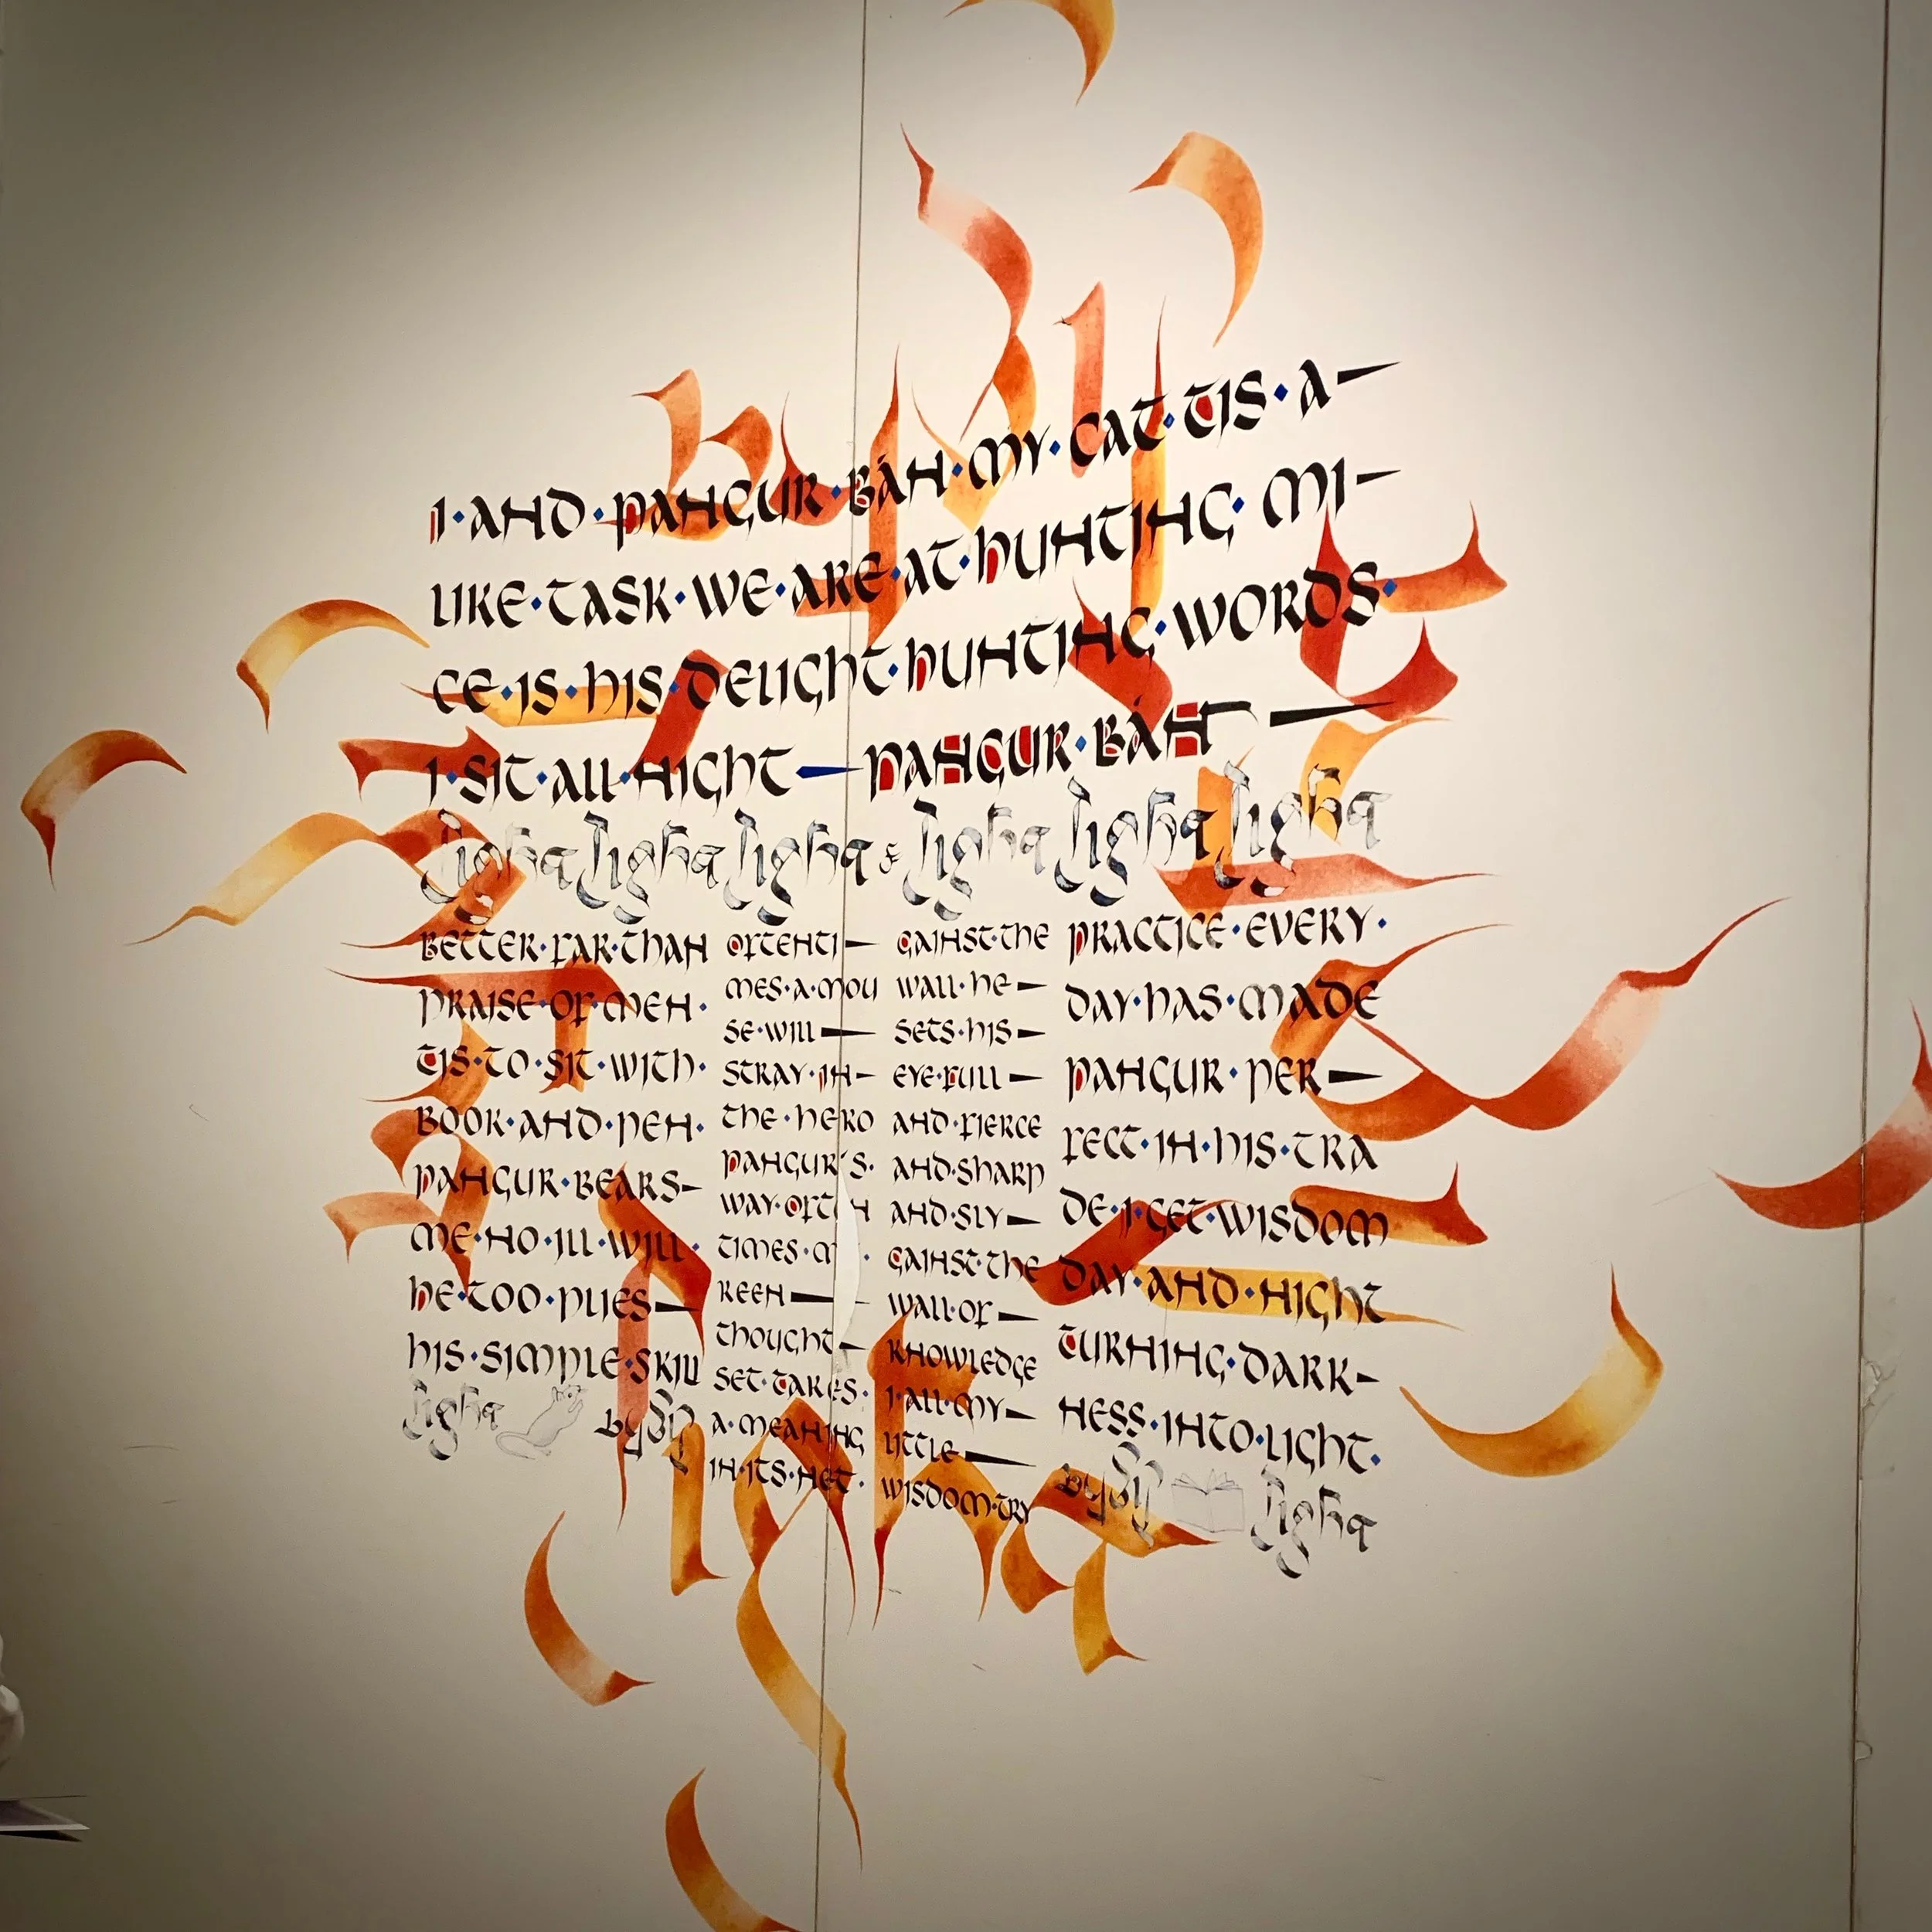 I·AND·PANGUR·BÁN·MY·CAT·TIS·A—
LIKE·TASK·WE·ARE·AT·HUNTING·MI—
CE·IS·HIS·DELIGHT·HUNTING·WORDS·
I·SIT·ALL·NIGHT—PANGUR·BÁN—
light light light & light light light
BETTER·FAR·THAN
PRAISE·OF·MEN·
TIS·TO·SIT·WITH·
BOOK·AND·PEN·
PANGUR·BEARS—
ME·NO·ILL·WILL·
HE·TOO·PLIES—
HIS·SIMPLE·SKILL
light
OFTENTI—
MES·A·MOU
SE·WILL—
STRAY·IN—
THE·HERO
PANGUR'S·
WAY·
TIMES·
KEEN—
THOUGHT—
SET·TAKES·
A·MEANING
IN·ITS·NET·
GAINST·THE
WALL·HE—
SETS·HIS—
EYE·FULL—
AND·FIERCE
AND·SHARP
AND·SLY—
GAINST·THE
WALL·OF—
KNOWLEDGE
I·ALL·MY—
LITTLE—
WISDOM·TRY
PRACTICE·EVERY·
DAY·HAS·MADE
PANGUR·PER—
FECT·IN·HIS·TRA
DE·I·GET·WISDOM
DAY·AND·NIGHT
TURNING·DARK-
NESS·INTO·LIGHT·
light